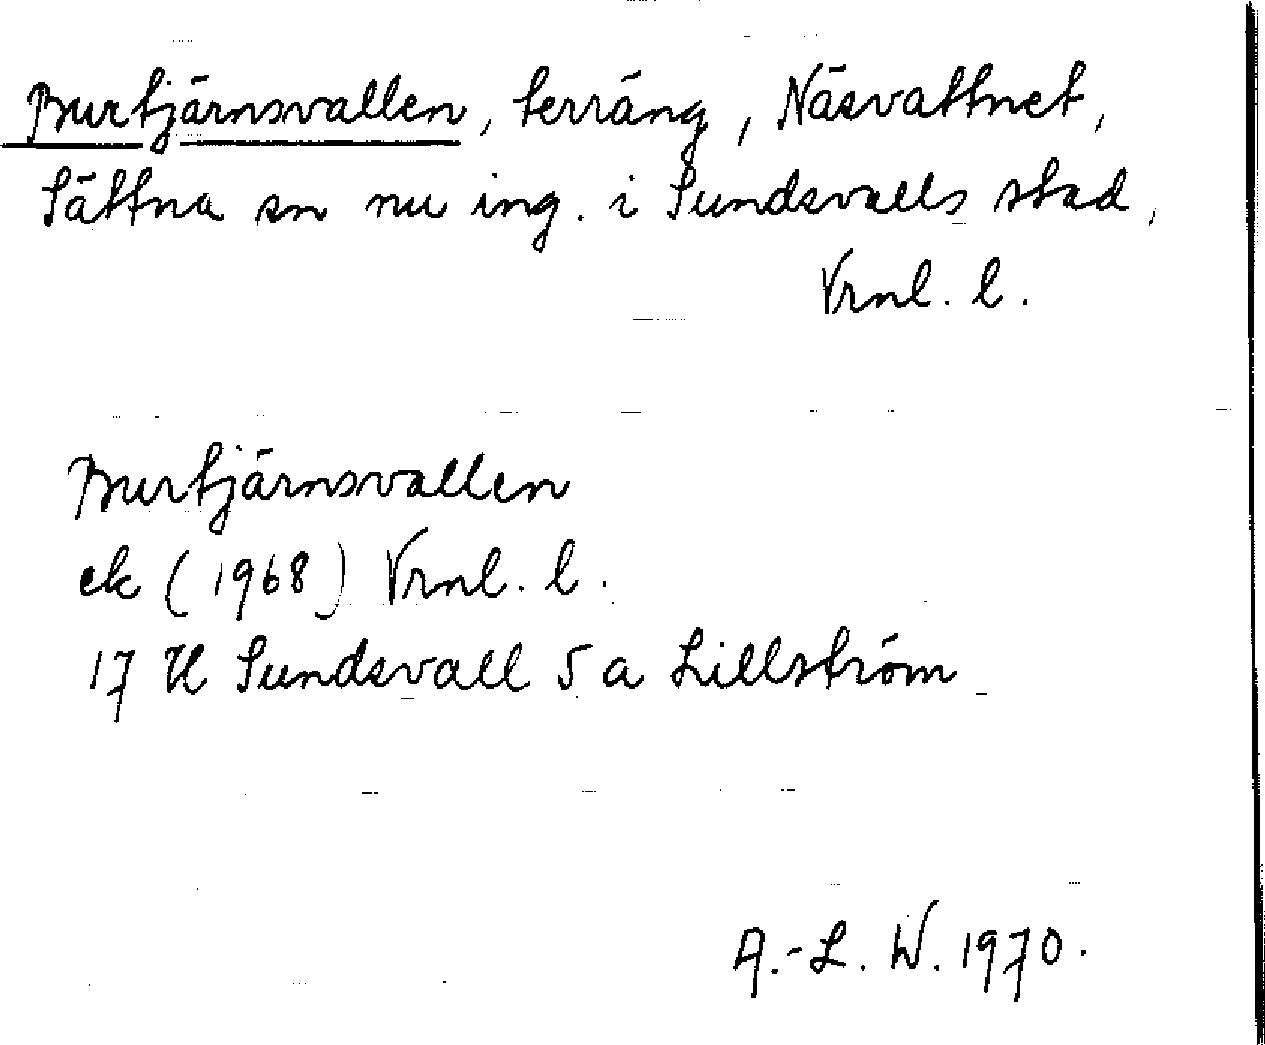 Burtjärnsvallen, terräng, Näsvattnet,
Sättna sn nu ing. i Sundsvalls stad,
Vrnl. l.
Burtjärnsvallen
ek (1968) Vrnl. l.
17 H Sundsvall 5 a Lillström
A.-L. W. 1970.